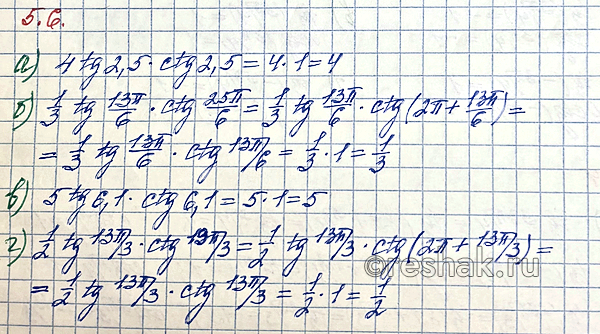 5.6.
а) 4 tg 2,5 · ctg 2,5 = 4 · 1 = 4
б) 1/3 tg 13π/6 · ctg 25π/6 = 1/3 tg 13π/6 · ctg(2π + 13π/6) =
= 1/3 tg 13π/6 · ctg 13π/6 = 1/3 · 1 = 1/3
в) 5 tg 6,1 · ctg 6,1 = 5 · 1 = 5
г) 1/2 tg 13π/3 · ctg 19π/3 = 1/2 tg 13π/3 · ctg(2π + 13π/3) =
= 1/2 tg 13π/3 · ctg 13π/3 = 1/2 · 1 = 1/2
©reshak.ru